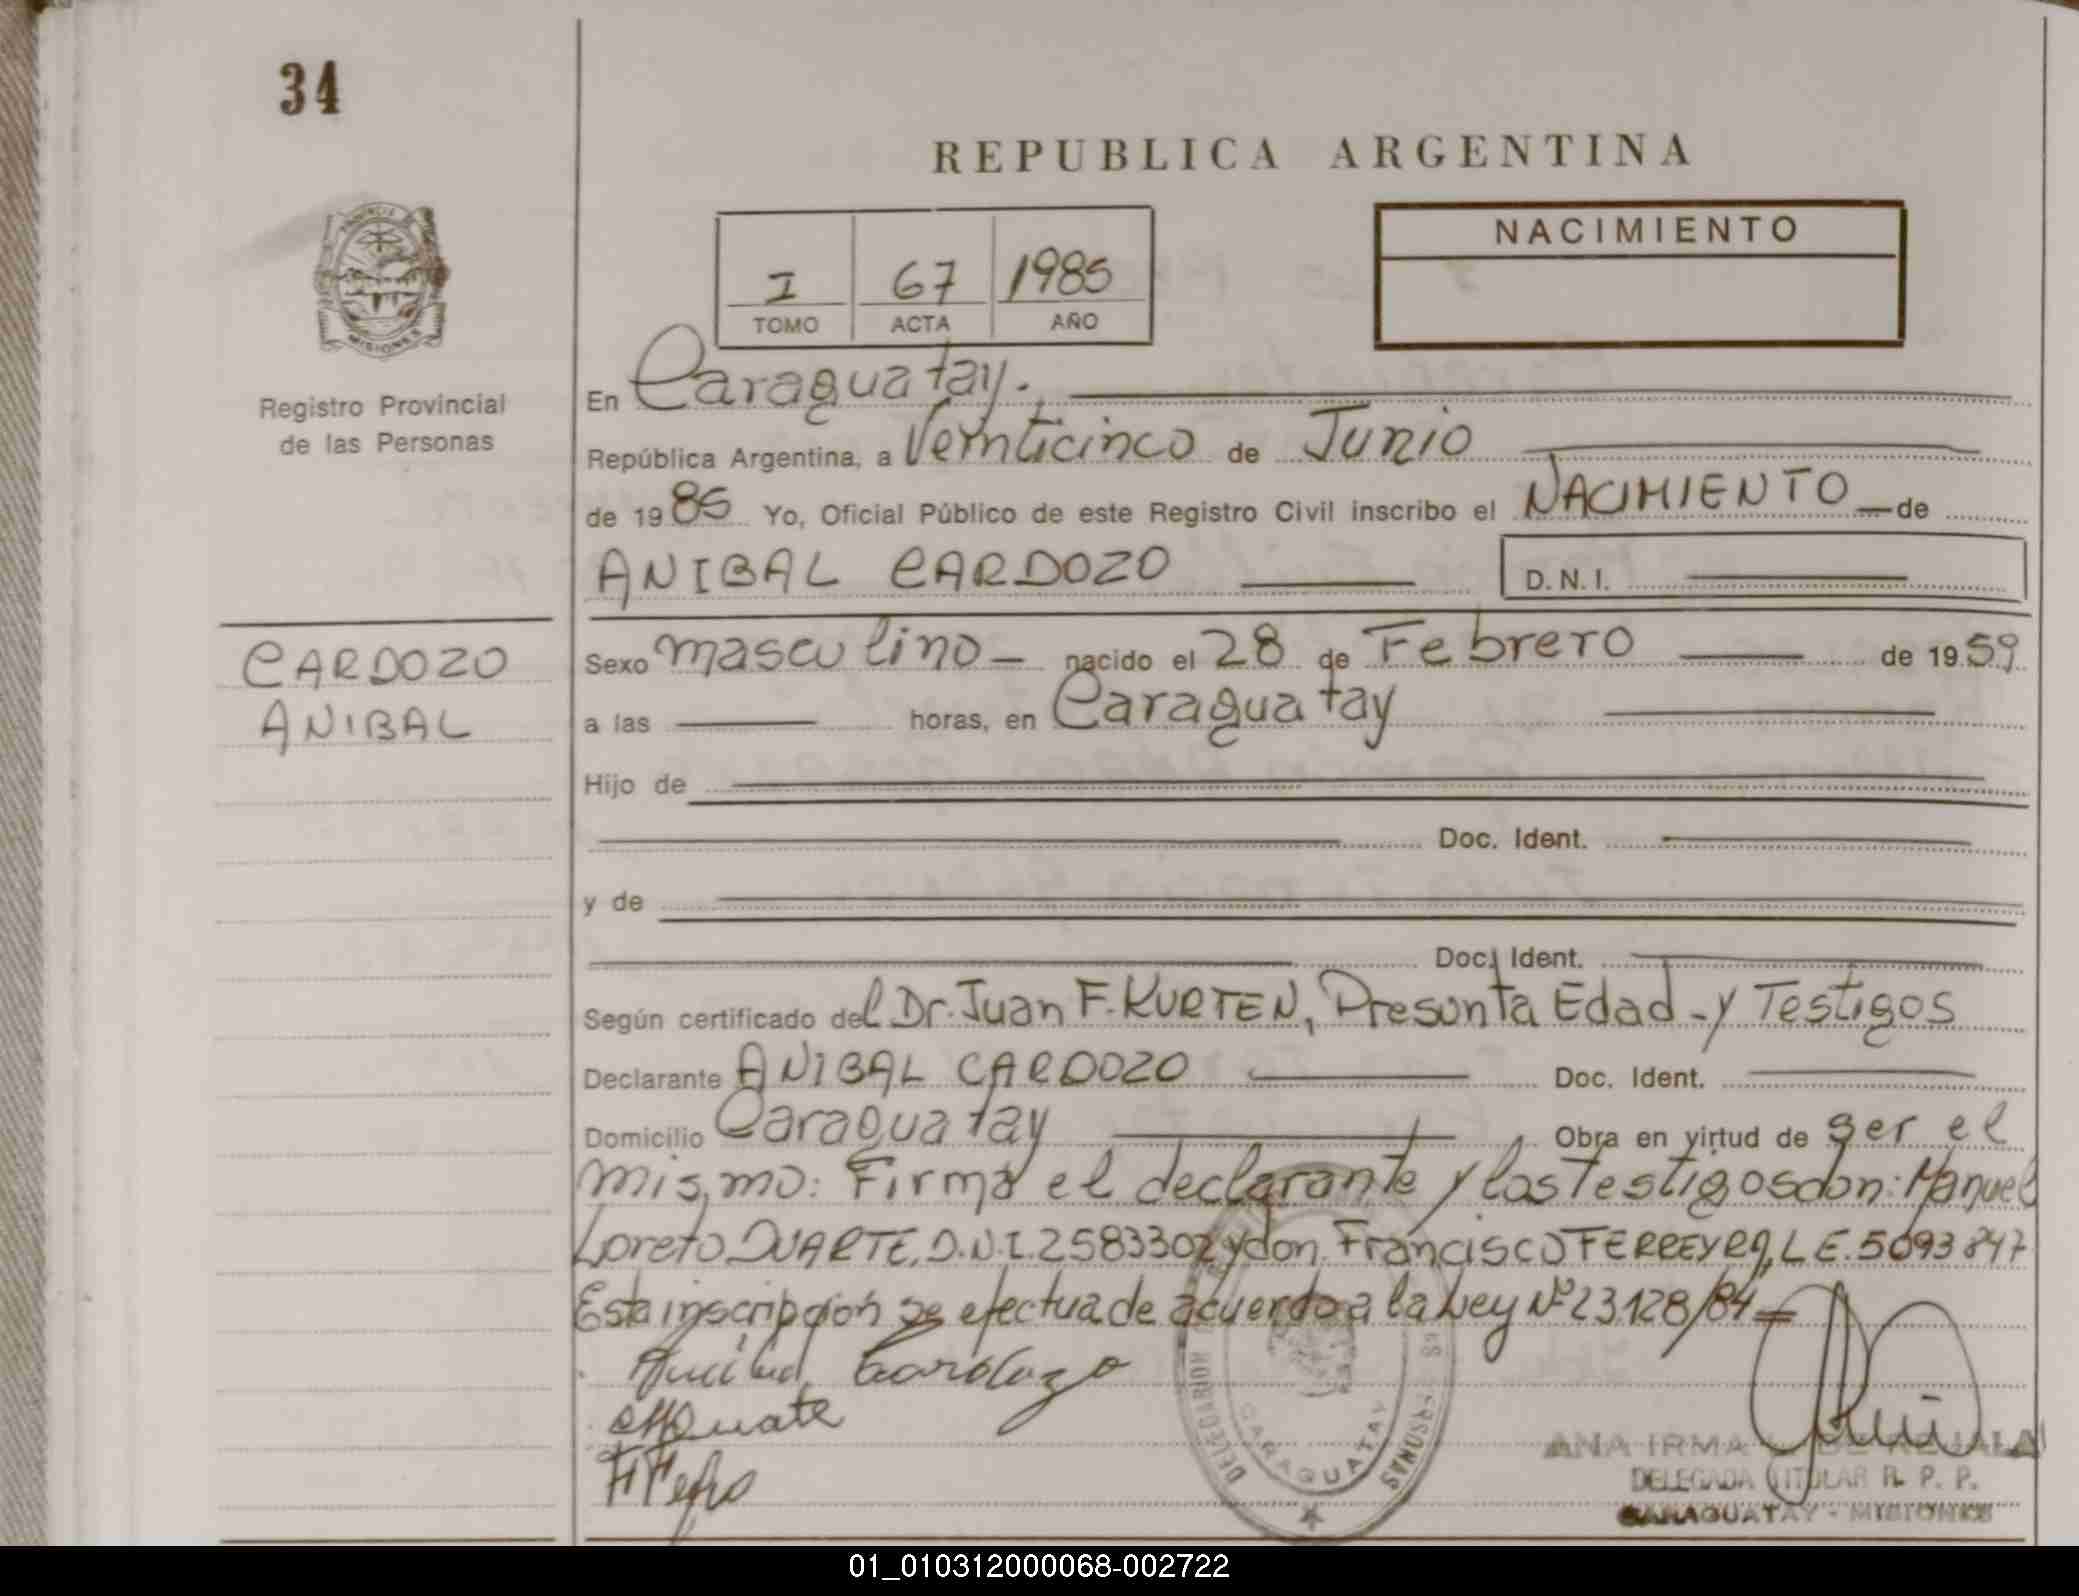 34
REPUBLICA ARGENTINA
NACIMIENTO
I 67 1985
TOMO ACTA AÑO
MISIONES
Registro Provincial
de las Personas
En Caraguatay.
República Argentina, a Veinticinco de Junio
de 1985 Yo, Oficial Público de este Registro Civil inscribo el NACIMIENTO de
ANIBAL CARDOZO D.N.I.
CARDOZO
ANIBAL
Sexo masculino nacido el 28 de Febrero de 1959
a las horas, en Caraguatay
Hijo de
Doc. Ident.
y de
Doc. Ident.
Según certificado del Dr. Juan F. KURTEN, Presunta Edad - y Testigos
Declarante ANIBAL CARDOZO Doc. Ident.
Domicilio Caraguatay Obra en virtud de ser el
mismo: Firma el declarante y los Testigos don: Manuel
Loreto DUARTE, D.N.I. 2583302 y don Francisco FERREYRA, L.E. 5093847
Esta inscripción se efectua de acuerdo a la Ley Nº 23.128/84
Cardozo
DELEGACION
CARAGUATAY
ANA IRMA
DELEGADA TITULAR R. P. P.
CARAGUATAY - MISIONES
01_010312000068-002722